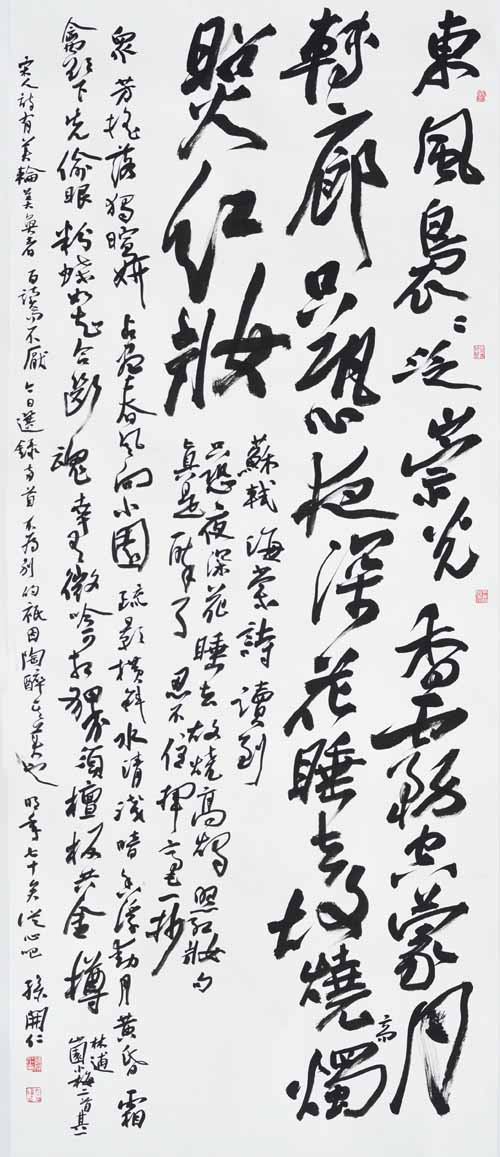 東風裊〻泛崇光香霧空蒙月
轉廊只恐夜深花睡去故燒高燭
照紅妝
蘇軾海棠詩讀到
只恐夜深花睡去故燒高燭照紅妝句
真是醉了忍不住揮毫一抄
衆芳搖落獨暄妍占盡春風向小園疏影橫斜水清淺暗香浮動月黄昏霜
禽欲下先偷眼粉蝶如知合斷魂幸有微吟可相狎不須檀板共金樽
林逋
山園小梅二首其一
宋人詩有美輪美奐者百讀不厭今日選錄兩首不為別的祇因陶醉其美也明年七十矣從心吧孫開仁